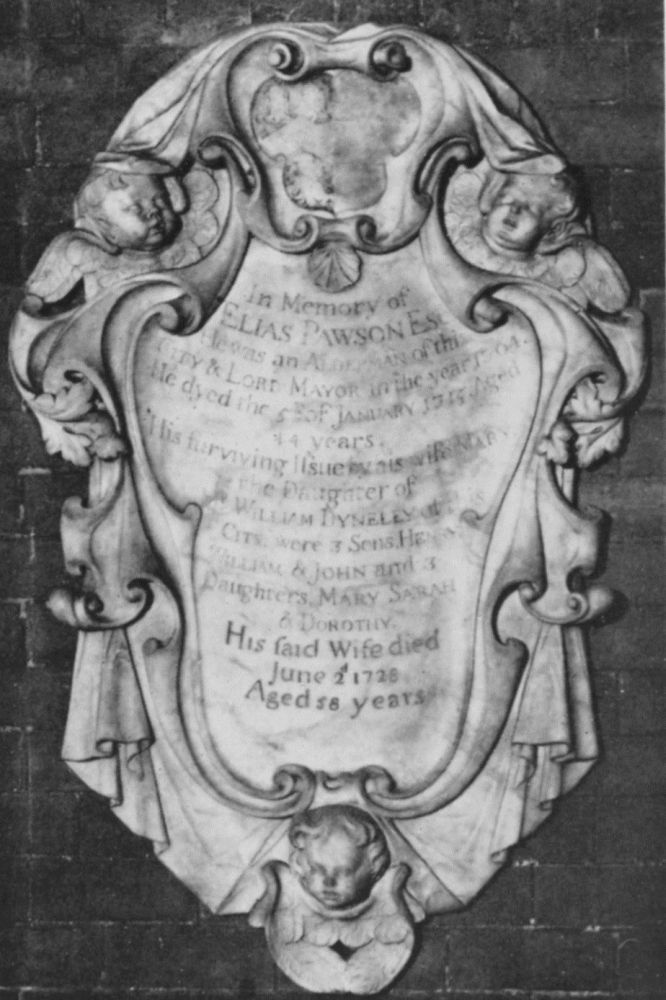 In Memory of
ELIAS PAWSON Esq
He was an ALDERMAN of this
CITY & LORD MAYOR in the year 1704.
He dyed the 5th of JANUARY 1715 Aged
44 years.
His surviving Issue by his wife MARY
the Daughter of
WILLIAM DYNELEY of this
CITY, were 3 Sons, HENRY
WILLIAM & JOHN and 3
Daughters, MARY SARAH
& DOROTHY.
HIS said Wife died
June 2d 1728
Aged 58 years